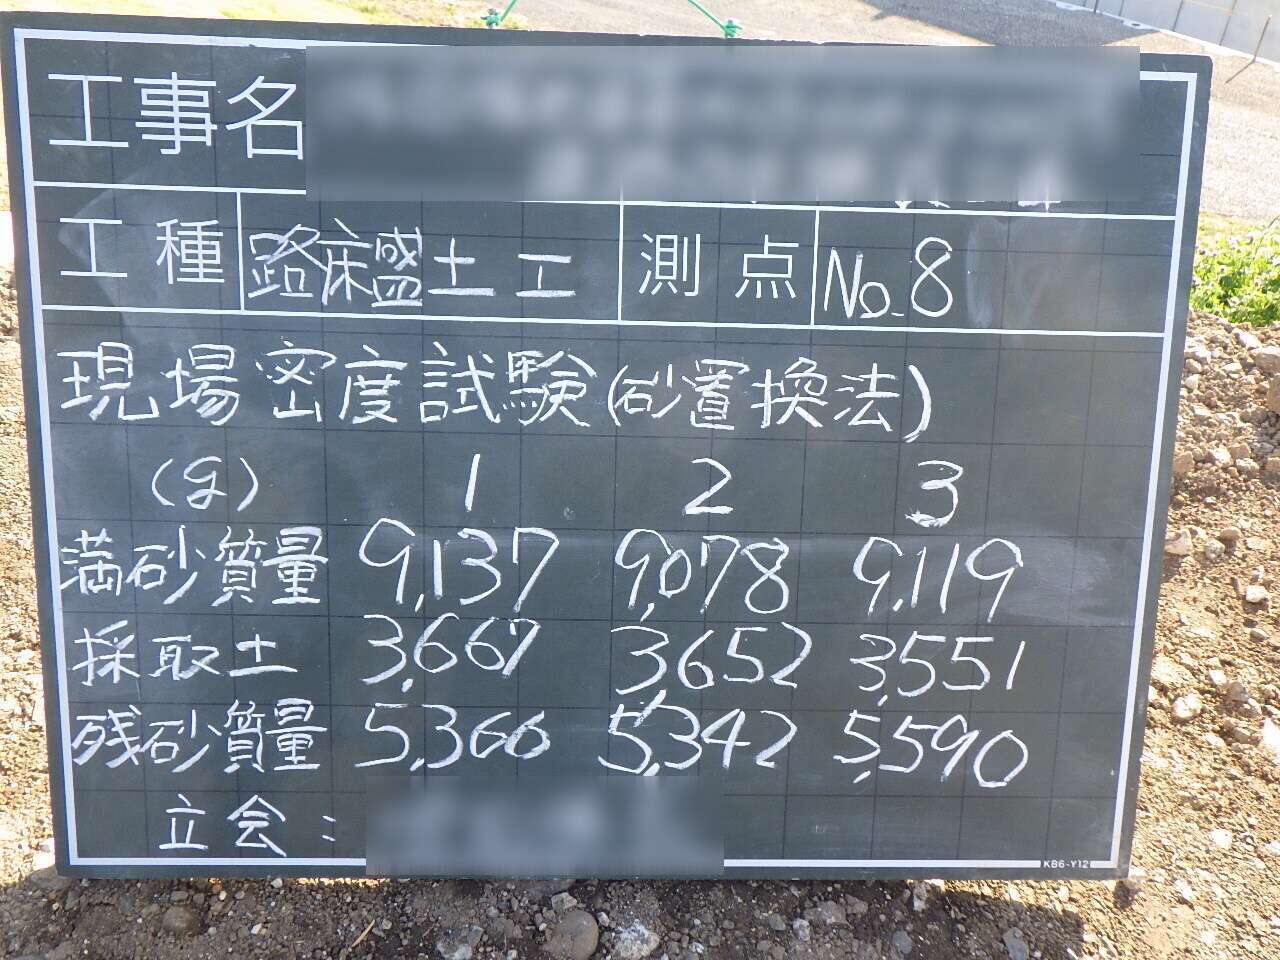 工事名
工種 路床盛土工 測点 No.8
現場密度試験(砂置換法)
(g) 1 2 3
満砂質量 9,137 9,078 9,119
採取土 3,667 3,652 3,551
残砂質量 5,366 5,342 5,590
立会:
KB6-Y12